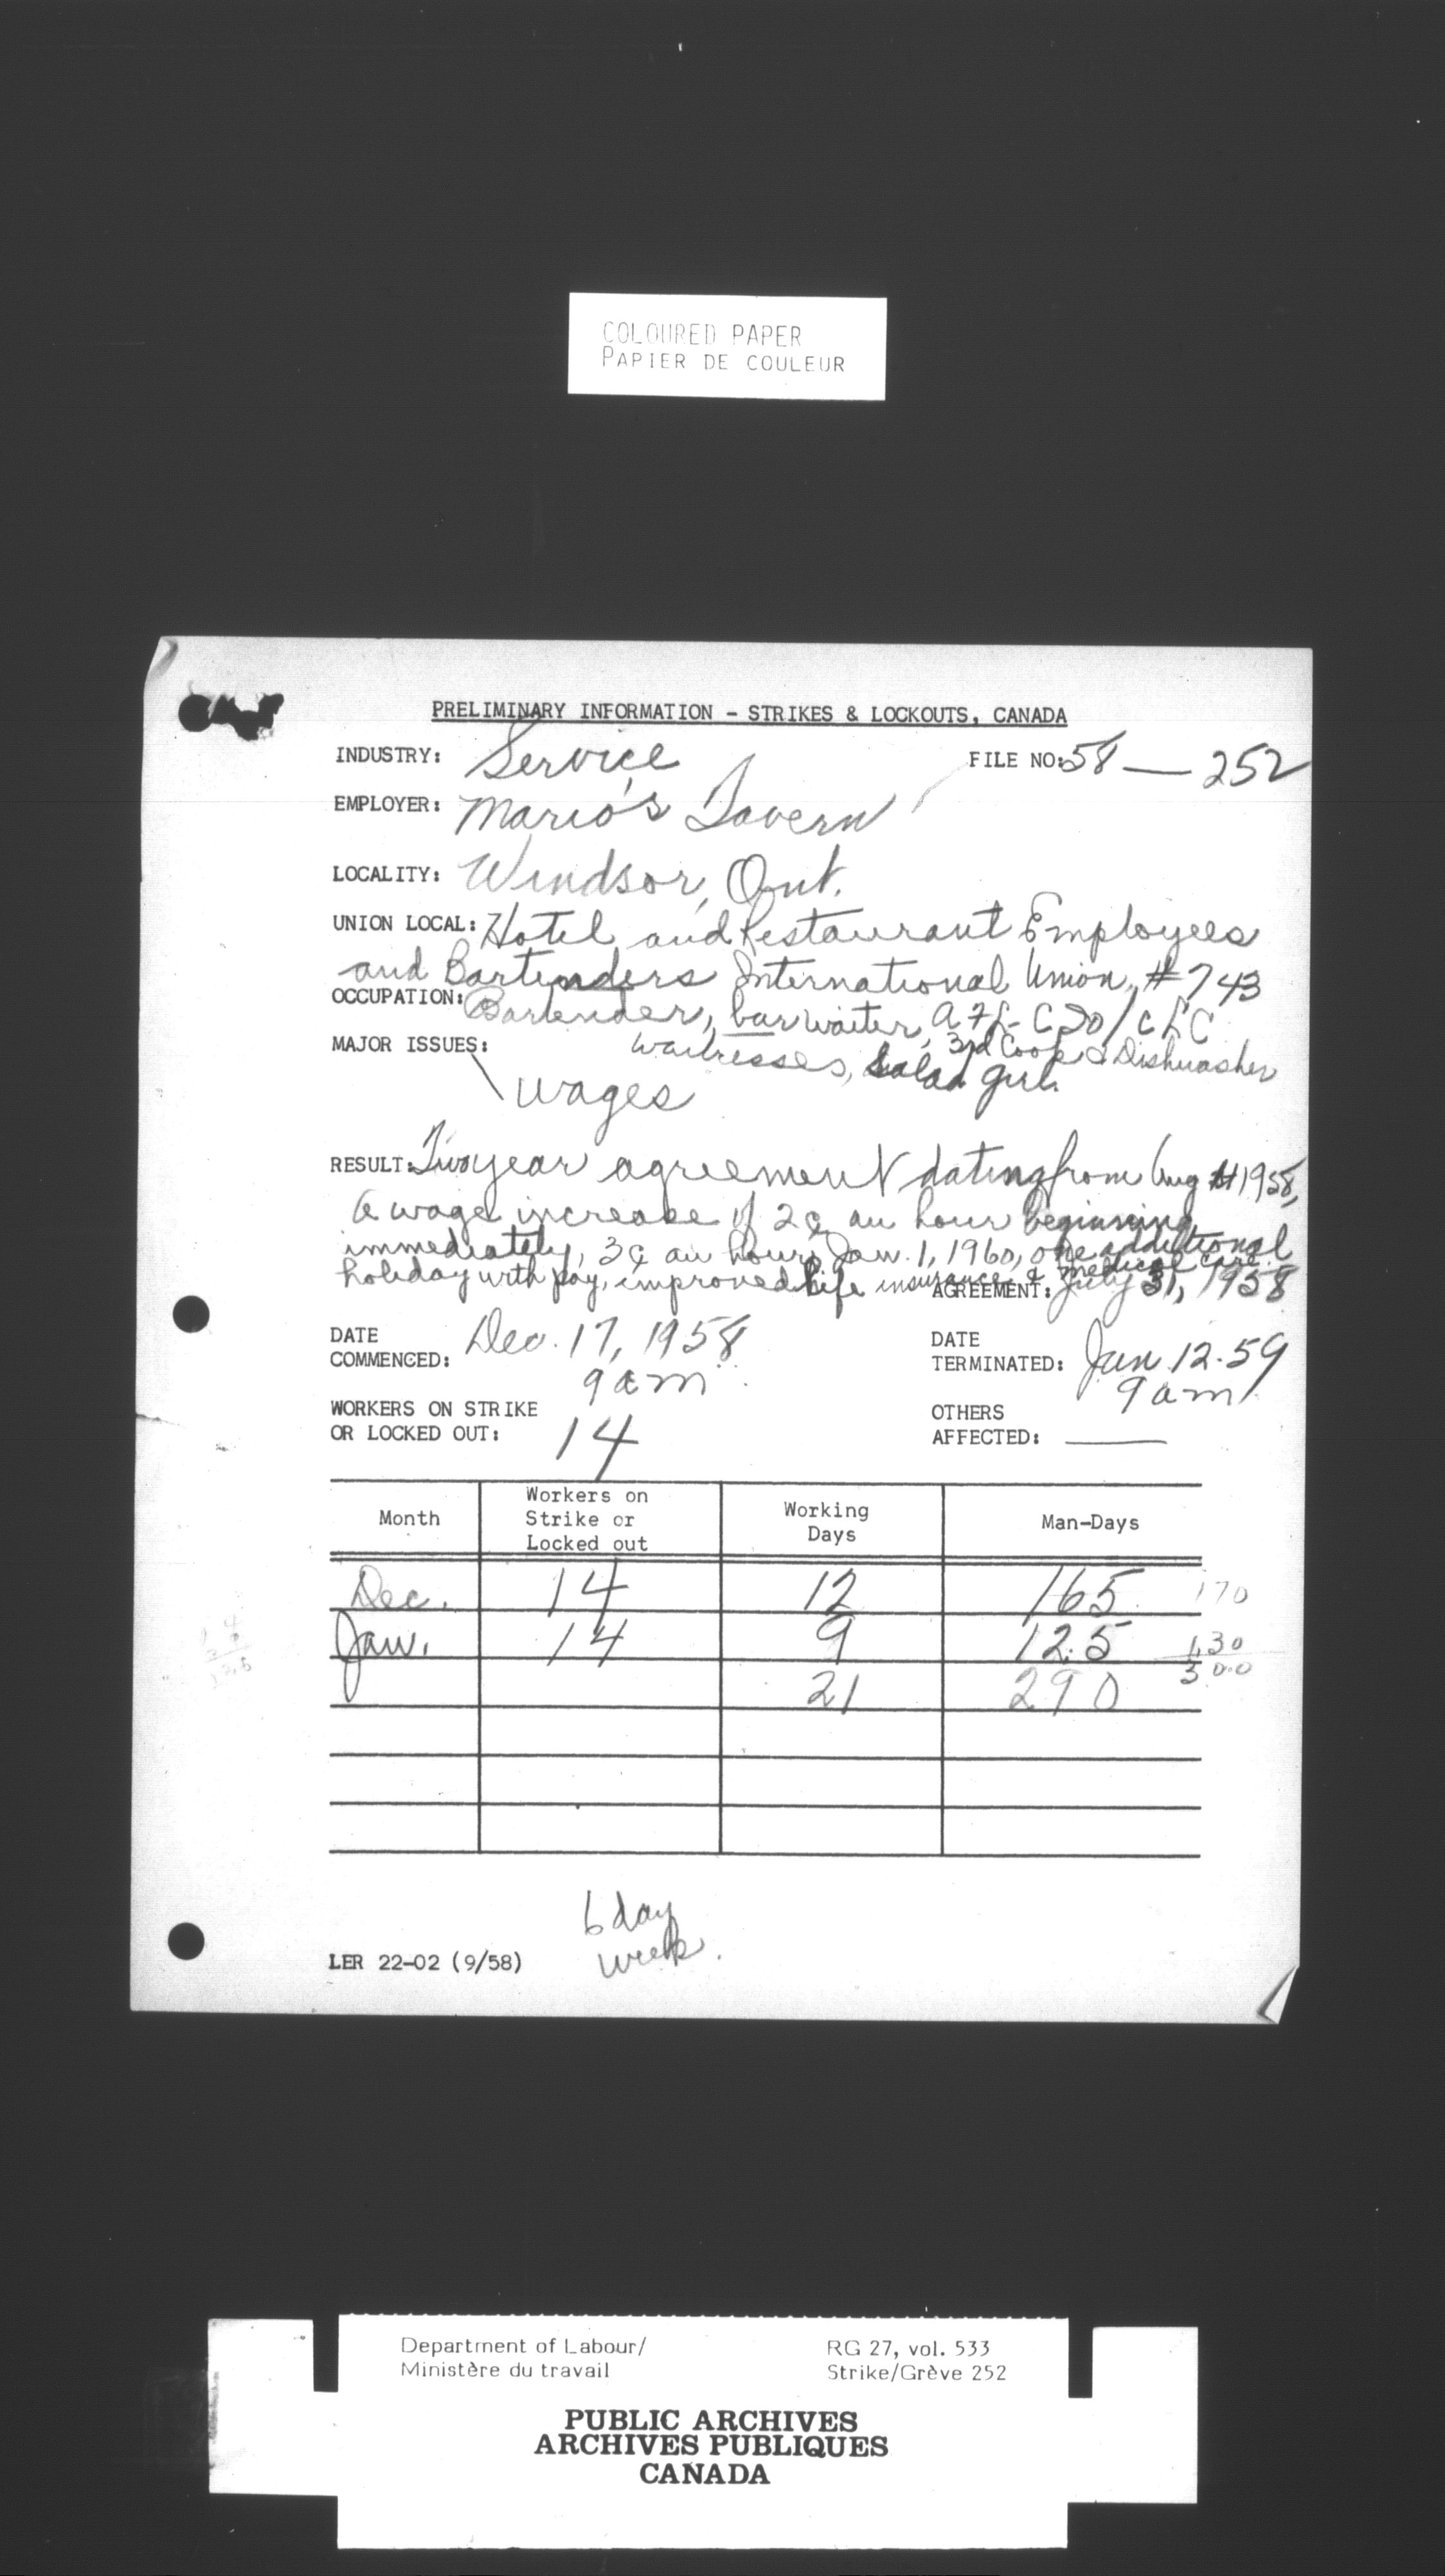 COLOURED PAPER
PAPIER DE COULEUR
PRELIMINARY INFORMATION - STRIKES & LOCKOUTS, CANADA
INDUSTRY: Service FILE NO: 58 — 252
EMPLOYER: Mario's Tavern
LOCALITY: Windsor, Ont.
UNION LOCAL: Hotel and Restaurant Employees
and Bartenders International Union, #743
OCCUPATION: Bartender, bar waiter, AFL-CIO/CLC
waitresses, 3rd Cook & Dishwasher
MAJOR ISSUES: salad girl
wages
RESULT: Two year agreement dating from Aug 1958,
a wage increase of 2¢ an hour beginning
immediately, 3¢ an hour Jan. 1, 1960, one additional
holiday with pay, improved life insurance & medical care.
AGREEMENT: July 31, 1958
DATE COMMENCED: Dec. 17, 1958
9 am
DATE TERMINATED: Jan 12-59
9 am
WORKERS ON STRIKE
OR LOCKED OUT: 14
OTHERS
AFFECTED: ——
Month Workers on Strike or Locked out Working Days Man-Days
Dec. 14 12 165 170
Jan. 14 9 125 130
21 290 300
6 day
week.
LER 22-02 (9/58)
Department of Labour/
Ministère du travail
RG 27, vol. 533
Strike/Grève 252
PUBLIC ARCHIVES
ARCHIVES PUBLIQUES
CANADA